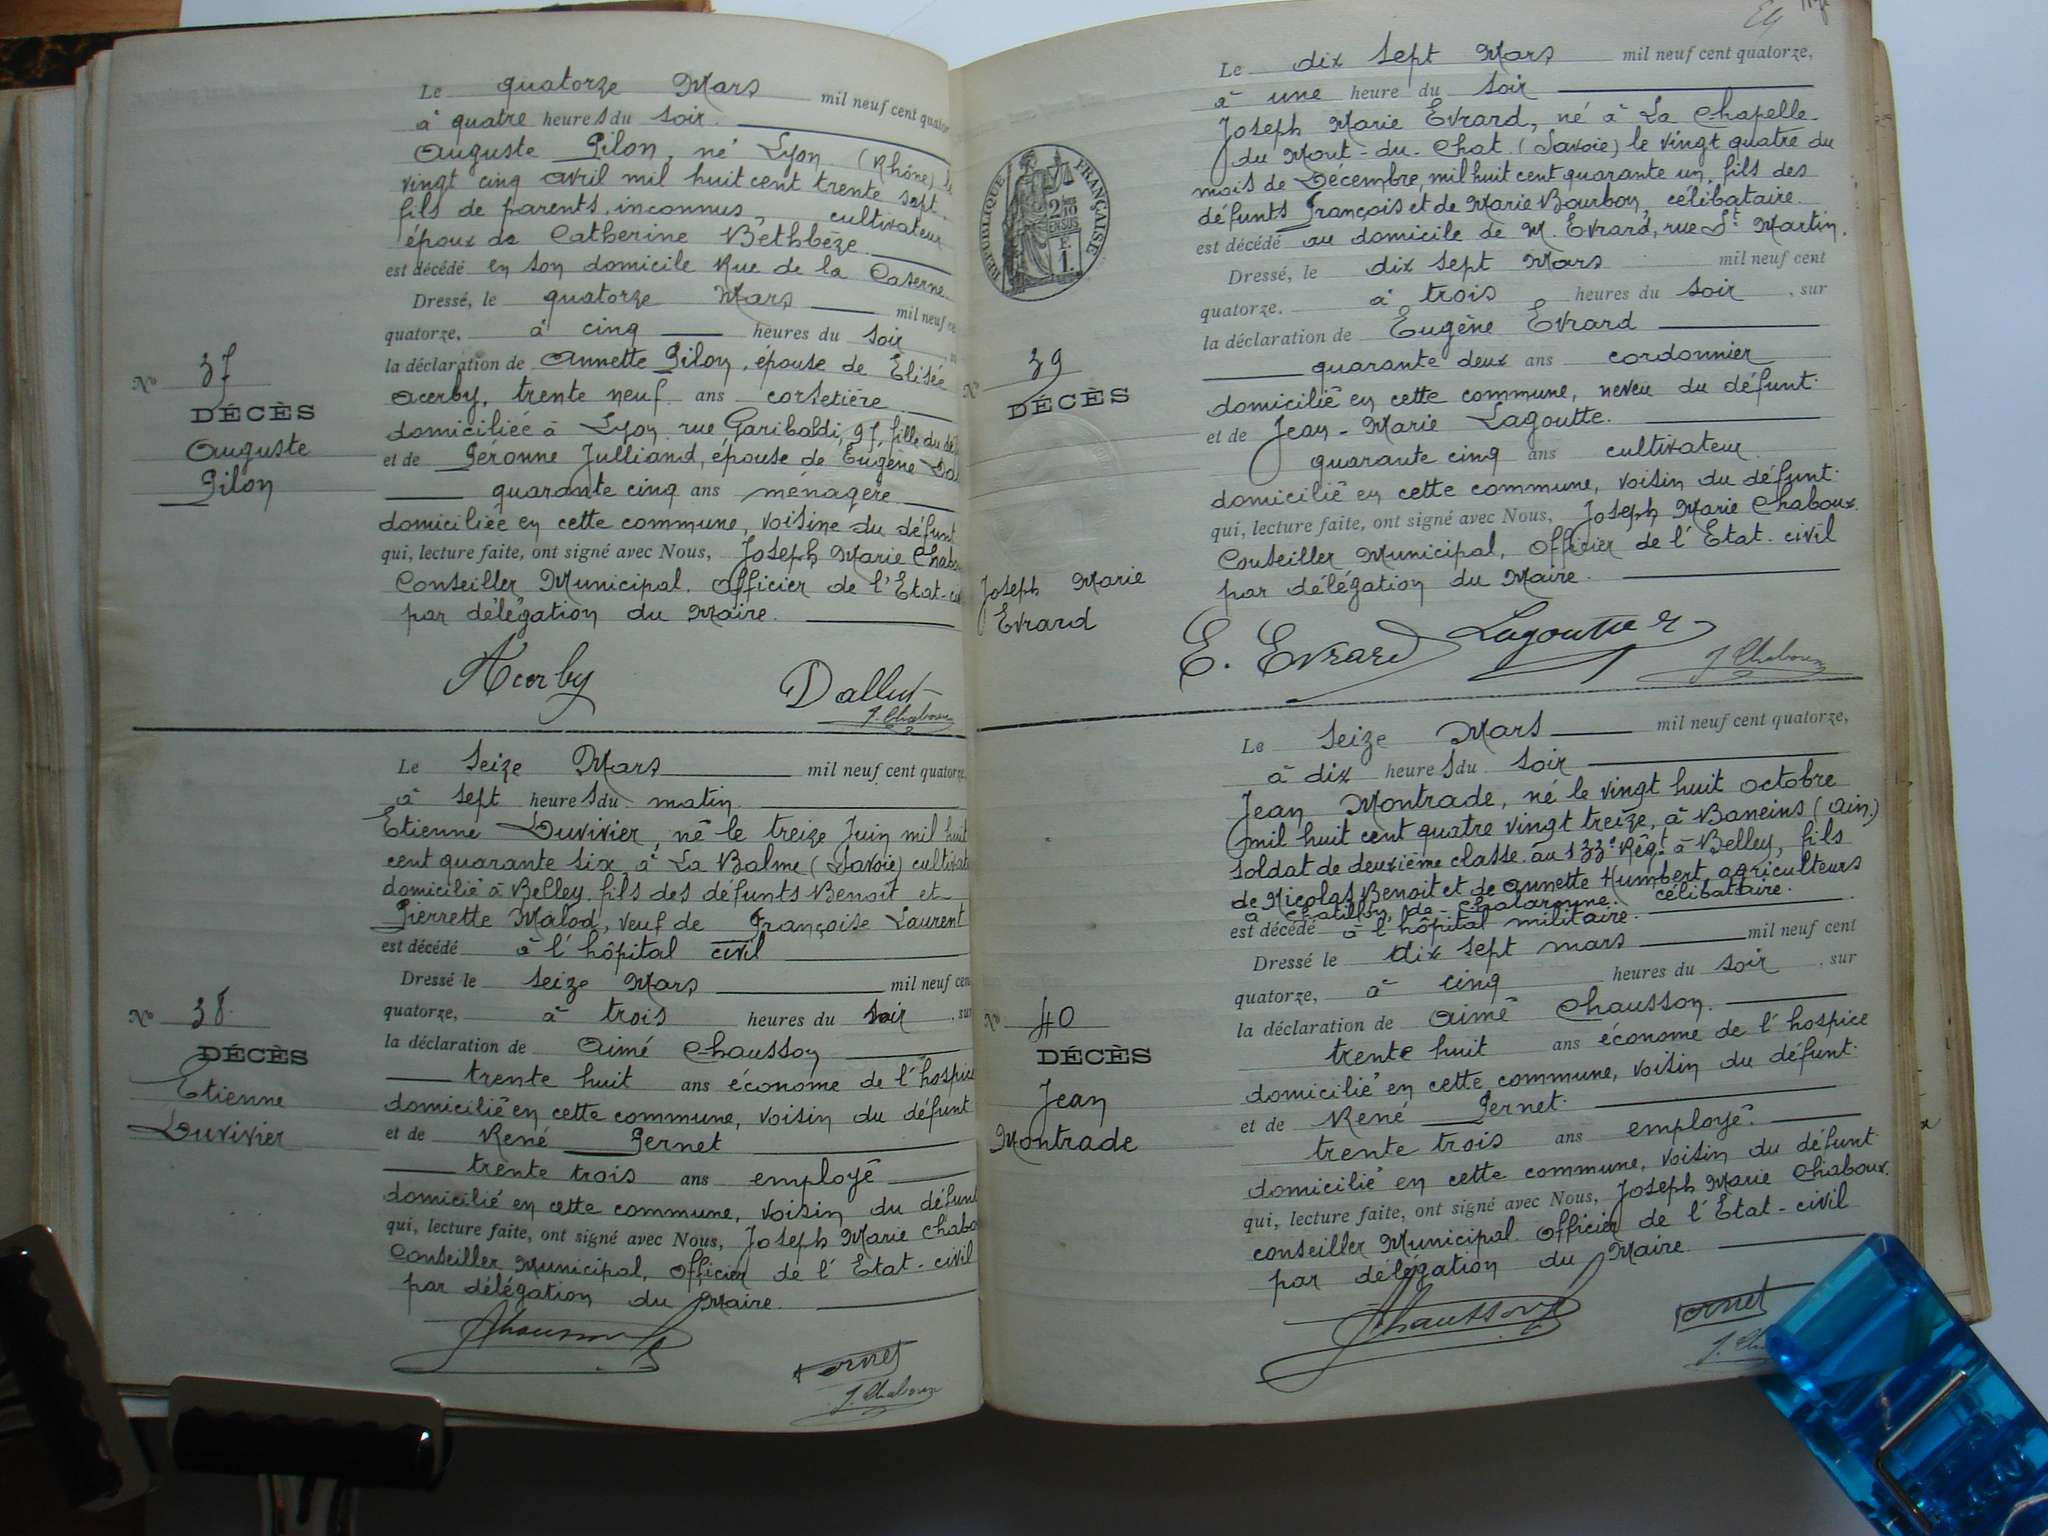 Le quatorze Mars mil neuf cent quator
à quatre heures du soir.
Auguste Pilon, né Lyon (Rhône) le
vingt cinq avril mil huit cent trente sept,
fils de parents inconnus, cultivateur
époux de Catherine Bethbèze
est décédé en son domicile Rue de la Caserne
Dressé, le quatorze Mars mil neuf ce
quatorze, à cinq heures du soir
la déclaration de Annette Pilon, épouse de Elisée
Acerby, trente neuf ans corsetière
domiciliée à Lyon rue Garibaldi, 97, fille du dé
et de Péronne Julliand, épouse de Eugène Dal
quarante cinq ans ménagère
domiciliée en cette commune, voisine du défunt
qui, lecture faite, ont signé avec Nous, Joseph Marie Chabo
Conseiller Municipal, Officier de l'Etat-ci
par délégation du Maire.
Acerby Dallut
J. Chaboux
N° 37
DÉCÈS
Auguste
Pilon
Le Seize Mars mil neuf cent quatorze,
à sept heures du matin
Etienne Duvivier, né le treize Juin mil huit
cent quarante six, à La Balme (Savoie) cultivat
domicilié à Belley fils des défunts Benoît et
Pierrette Malod, veuf de Françoise Laurent
est décédé à l'hôpital civil
Dressé le seize Mars mil neuf cen
quatorze, à trois heures du soir, sur
la déclaration de Aimé Chausson
trente huit ans économe de l'hospice
domicilié en cette commune, voisin du défunt
et de René Pernet
trente trois ans employé
domicilié en cette commune, voisin du défunt
qui, lecture faite, ont signé avec Nous, Joseph Marie Chabo
Conseiller Municipal, Officier de l'Etat-civil
par délégation du Maire.
Chausson Pernet
J. Chaboux
N° 38
DÉCÈS
Etienne
Duvivier
Le dix sept Mars mil neuf cent quatorze,
à une heure du soir
Joseph Marie Evrard, né à La Chapelle-
du Mont-du-Chat (Savoie) le vingt quatre du
mois de Décembre, mil huit cent quarante un, fils des
défunts François et de Marie Bourbon, célibataire.
est décédé au domicile de M. Evrard, rue St Martin.
Dressé, le dix sept Mars mil neuf cent
quatorze, à trois heures du soir, sur
la déclaration de Eugène Evrard
quarante deux ans cordonnier
domicilié en cette commune, neveu du défunt.
et de Jean-Marie Lagoutte.
quarante cinq ans cultivateur
domicilié en cette commune, voisin du défunt.
qui, lecture faite, ont signé avec Nous, Joseph Marie Chaboux
Conseiller Municipal, Officier de l'Etat-civil
par délégation du Maire.
E. Evrard Lagoutte
J. Chaboux
RÉPUBLIQUE FRANÇAISE
2/10
EN SUS
1 F.
N° 39
DÉCÈS
Joseph Marie
Evrard
Le Seize Mars mil neuf cent quatorze,
à dix heures du soir
Jean Montrade, né le vingt huit octobre
mil huit cent quatre vingt treize, à Baneins (Ain)
soldat de deuxième classe au 133e Régt à Belley, fils
de Nicolas Benoit et de Annette Humbert, agriculteurs
à Chatillon-de-Chalaronne, célibataire.
est décédé à l'hôpital militaire.
Dressé le dix sept mars mil neuf cent
quatorze, à cinq heures du soir, sur
la déclaration de Aimé Chausson.
trente huit ans économe de l'hospice
domicilié en cette commune, voisin du défunt.
et de René Pernet.
trente trois ans employé.
domicilié en cette commune, voisin du défunt
qui, lecture faite, ont signé avec Nous, Joseph Marie Chaboux.
conseiller Municipal Officier de l'Etat-civil
par délégation du Maire
Chausson Pernet
N° 40
DÉCÈS
Jean
Montrade